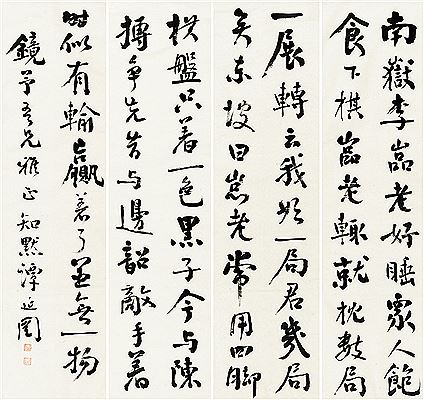 南嶽李嵓老好睡眾人飽
食下棋嵓老輒就枕數局
一展轉云我始一局君幾局
矣東坡曰嵓老常用四脚
棋盤只著一色黑子今与陳
摶爭先昔与邊韶敵手著
時似有輸贏著了並無一物
鏡吾兄雅正知默譚延闓